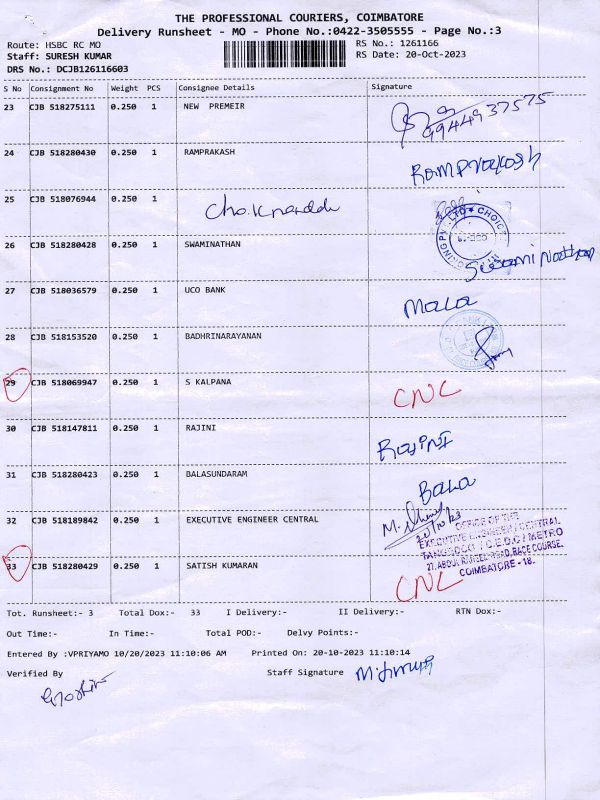 THE PROFESSIONAL COURIERS, COIMBATORE
Delivery Runsheet - MO - Phone No.:0422-3505555 - Page No.:3
Route: HSBC RC MO
RS No.: 1261166
Staff: SURESH KUMAR
RS Date: 20-Oct-2023
DRS No.: DCJB126116603
S No Consignment No Weight PCS Consignee Details Signature
23 CJB 518275111 0.250 1 NEW PREMEIR 9944937575
24 CJB 518280430 0.250 1 RAMPRAKASH Ramprakash
25 CJB 518076944 0.250 1
CHOICE
26 CJB 518280428 0.250 1 SWAMINATHAN
27 CJB 518036579 0.250 1 UCO BANK Mala
28 CJB 518153520 0.250 1 BADHRINARAYANAN
29 CJB 518069947 0.250 1 S KALPANA CNC
30 CJB 518147811 0.250 1 RAJINI RajinI
31 CJB 518280423 0.250 1 BALASUNDARAM Bala
32 CJB 518189842 0.250 1 EXECUTIVE ENGINEER CENTRAL 20/10/23
OFFICE OF THE
EXECUTIVE ENGINEER / CENTRAL
TANGEDCO / C.E.D.C / METRO
RACE COURSE,
COIMBATORE - 18.
33 CJB 518280429 0.250 1 SATISH KUMARAN CNC
Tot. Runsheet:- 3 Total Dox:- 33 I Delivery:- II Delivery:- RTN Dox:-
Out Time:- In Time:- Total POD:- Delvy Points:-
Entered By :VPRIYAMO 10/20/2023 11:10:06 AM Printed On: 20-10-2023 11:10:14
Verified By Staff Signature